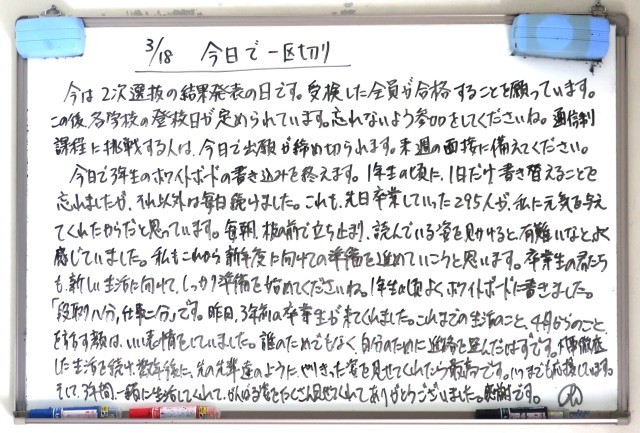 3/18 今日で一区切り
今は2次選抜の結果発表の日です。受検した全員が合格することを願っています。
この後、各学校の登校日が定められています。忘れないよう参加をしてくださいね。通信制
課程に挑戦する人は、今日で出願が締め切られます。来週の面接に備えてください。
今日で3年生のホワイトボードの書き込みを終えます。1年生の頃に、1日だけ書き替えることを
忘れましたが、それ以外は毎日続けました。これも、先日卒業していった295人が、私に元気を与え
てくれたからだと思っています。毎朝、板の前で立ち止まり、読んでいる姿を見かけると、有難いなとよく
感じていました。私もこれから新年度に向けての準備を進めていこうと思います。卒業生の君たち
も、新しい生活に向けて、しっかり準備を始めてくださいね。1年生の頃よくホワイトボードに書きました。
「段取り八分、仕事二分」です。昨日、3年前の卒業生が来てくれました。これまでの生活のこと、4月からのこと、
をする顔は、いい表情をしていました。誰のためでもなく自分のために進路を選んだはずです。凡事徹底
した生活を続け、数年後に、先の先輩達のように、やりきった姿を見せてくれたら最高です。いつまでも応援しています。
そして、3年間、一緒に生活してくれて、がんばる姿をたくさん見せてくれてありがとうございました。感謝です。